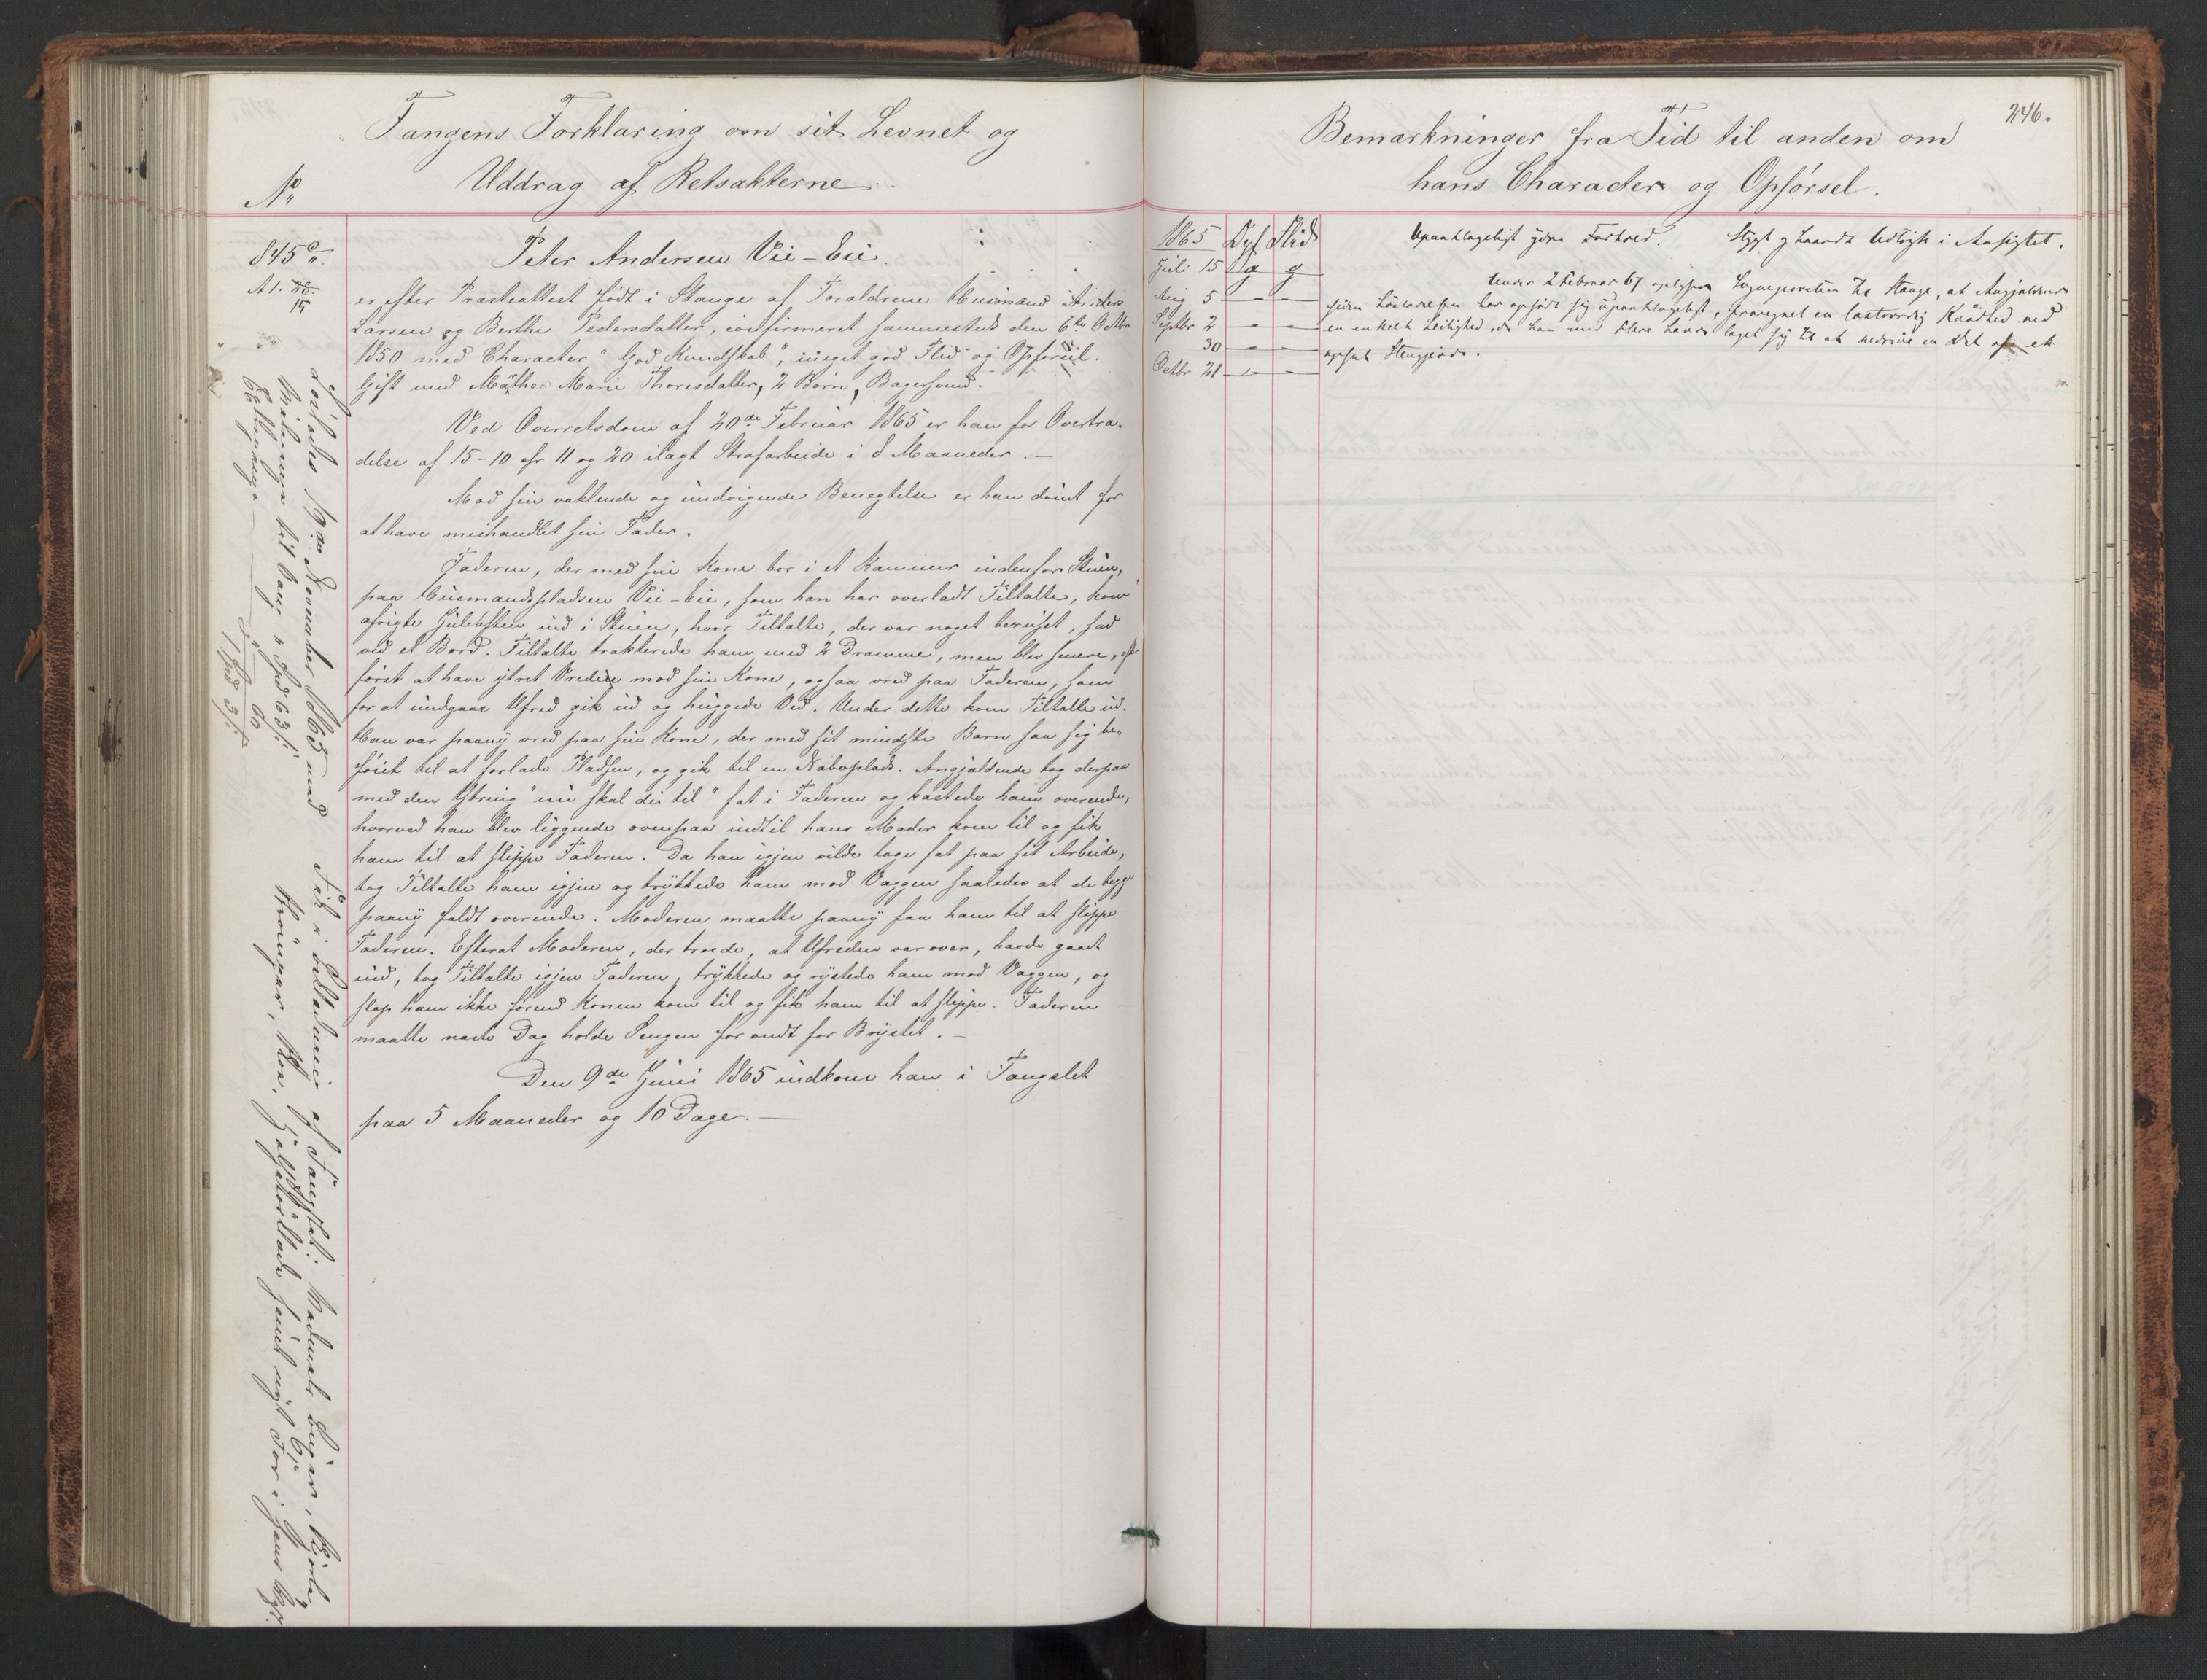 Fangens Forklaring om sit Levnet og
Uddrag af Retsakterne.
No
845
Peter Andersen Vie-Eie.
er efter Præsteattest født i Stange af Forældrene Husmand Anders
Larsen og Berthe Pedersdatter, confirmeret sammesteds den 6te Octbr
1850 med Character "God Kundskab", meget god Flid og Opførsel.
Gift med Mathe Marie Thoresdatter, 2 Børn,
Ved Overretsdom af 20de Februar 1865 er han for Overtræ-
delse af 15-10 cfr 11 og 20 ilagt Strafarbeide i 8 Maaneder.—
Mod sin vaklende og undvigende Benegtelse er han dømt for
at have mishandlet sin Fader.
Faderen, der med sin Kone bor i et Kammer indenfor Stuen,
paa Huusmandspladsen Vie-Eie, som han har overladt Tiltalte, kom
afvigte Juleaften ind i Stuen, hvor Tiltalte, der var noget beruset, sad
ved et Bord. Tiltalte trakterede ham med 2 Dramme, men blev senere, efter
først at have ytret Vrede mod sin Kone, ogsaa vred paa Faderen, som
for at undgaae Ufred gik ud og huggede Ved. Under dette kom Tiltalte ud.
Han var paany vred paa sin Kone, der med sit mindste Barn saa sig be-
føiet til at forlade Pladsen, og gik til en Naboplads. Angjældende tog derpaa
med den Ytring "nu skal du til" fat i Faderen og kastede ham overende,
hvorved han blev liggende ovenpaa indtil hans Moder kom til og fik
ham til at slippe Faderen. Da han igjen vilde tage fat paa sit Arbeide,
tog Tiltalte ham igjen og trykkede ham mod Væggen saaledes at de begge
paany faldt overende. Moderen maatte paany faa ham til at slippe
Faderen. Efterat Moderen, der troede, at Ufreden var over, havde gaaet
ind, tog Tiltalte igjen Faderen, trykkede og rystede ham mod Væggen, og
slap ham ikke førend Konen kom til og fik ham til at slippe. Faderen
maatte næste Dag holde Sengen for ondt for Brystet.—
Den 9de Juni 1865 indkom han i Fangslet
paa 5 Maaneder og 10 Dage.—
Løslades 19de November 1865 med
Fik i Betaling af Fangslet: Vadmels
246.
Bemærkninger fra Tid til anden om
hans Character og Opførsel.
1865 Opf Flid
Juli 15 g g
Aug 5 – –
Septbr 2 – –
30 – –
Octbr 21 – –
Upaaklageligt ydre Forhold. Stygt og haardt Udtryk i Ansigtet.
Under 2 Februar 67 oplyser Sognepresten til Stange, at Angjældende
siden Løsladelsen har opført sig upaaklageligt, fraregnet en lastværdig Kaadhed ved
en enkelt Leilighed, da han med flere havde laget sig til at nedrive en Del af et
opsat Stengjærde.